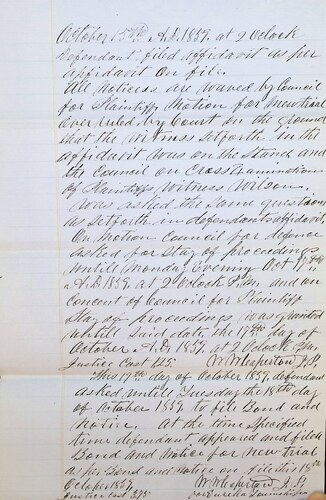 October 15th A.D. 1859. at 2 Oclock
Defendant filed affidavit as per
affidavit on file.
All Notices are waved by Council
for Plaintiff Motion for New trial
over ruled by Court on the ground
that the Witness setforth in the
affidavit was on the Stand and
the Council on Cross Examination
of Plaintiffs Witness Wilson.
Was asked the same questions
as setforth in defendants affidavit,
On Motion Council for defence
asked for Stay of proceedings
untill Monday Evening Oct 17th
A.D. 1859. at 2 Oclock P.M. and on
Concent of Council for Plaintiff
Stay of proceedings was granted
untill said date the 17th day of
October A.D. 1859. at 2 Oclock P.M.
Justice Cost
J.P.
This 17th day of October 1859. defendant
asked untill Tuesday the 18th day
of October 1859. to file Bond and
Notice. At the time Specified
time defendant appeared and filed
Bond and Notice for New trial
as per Bond and Notice on file this 18th
October 1859.
Justice Cost